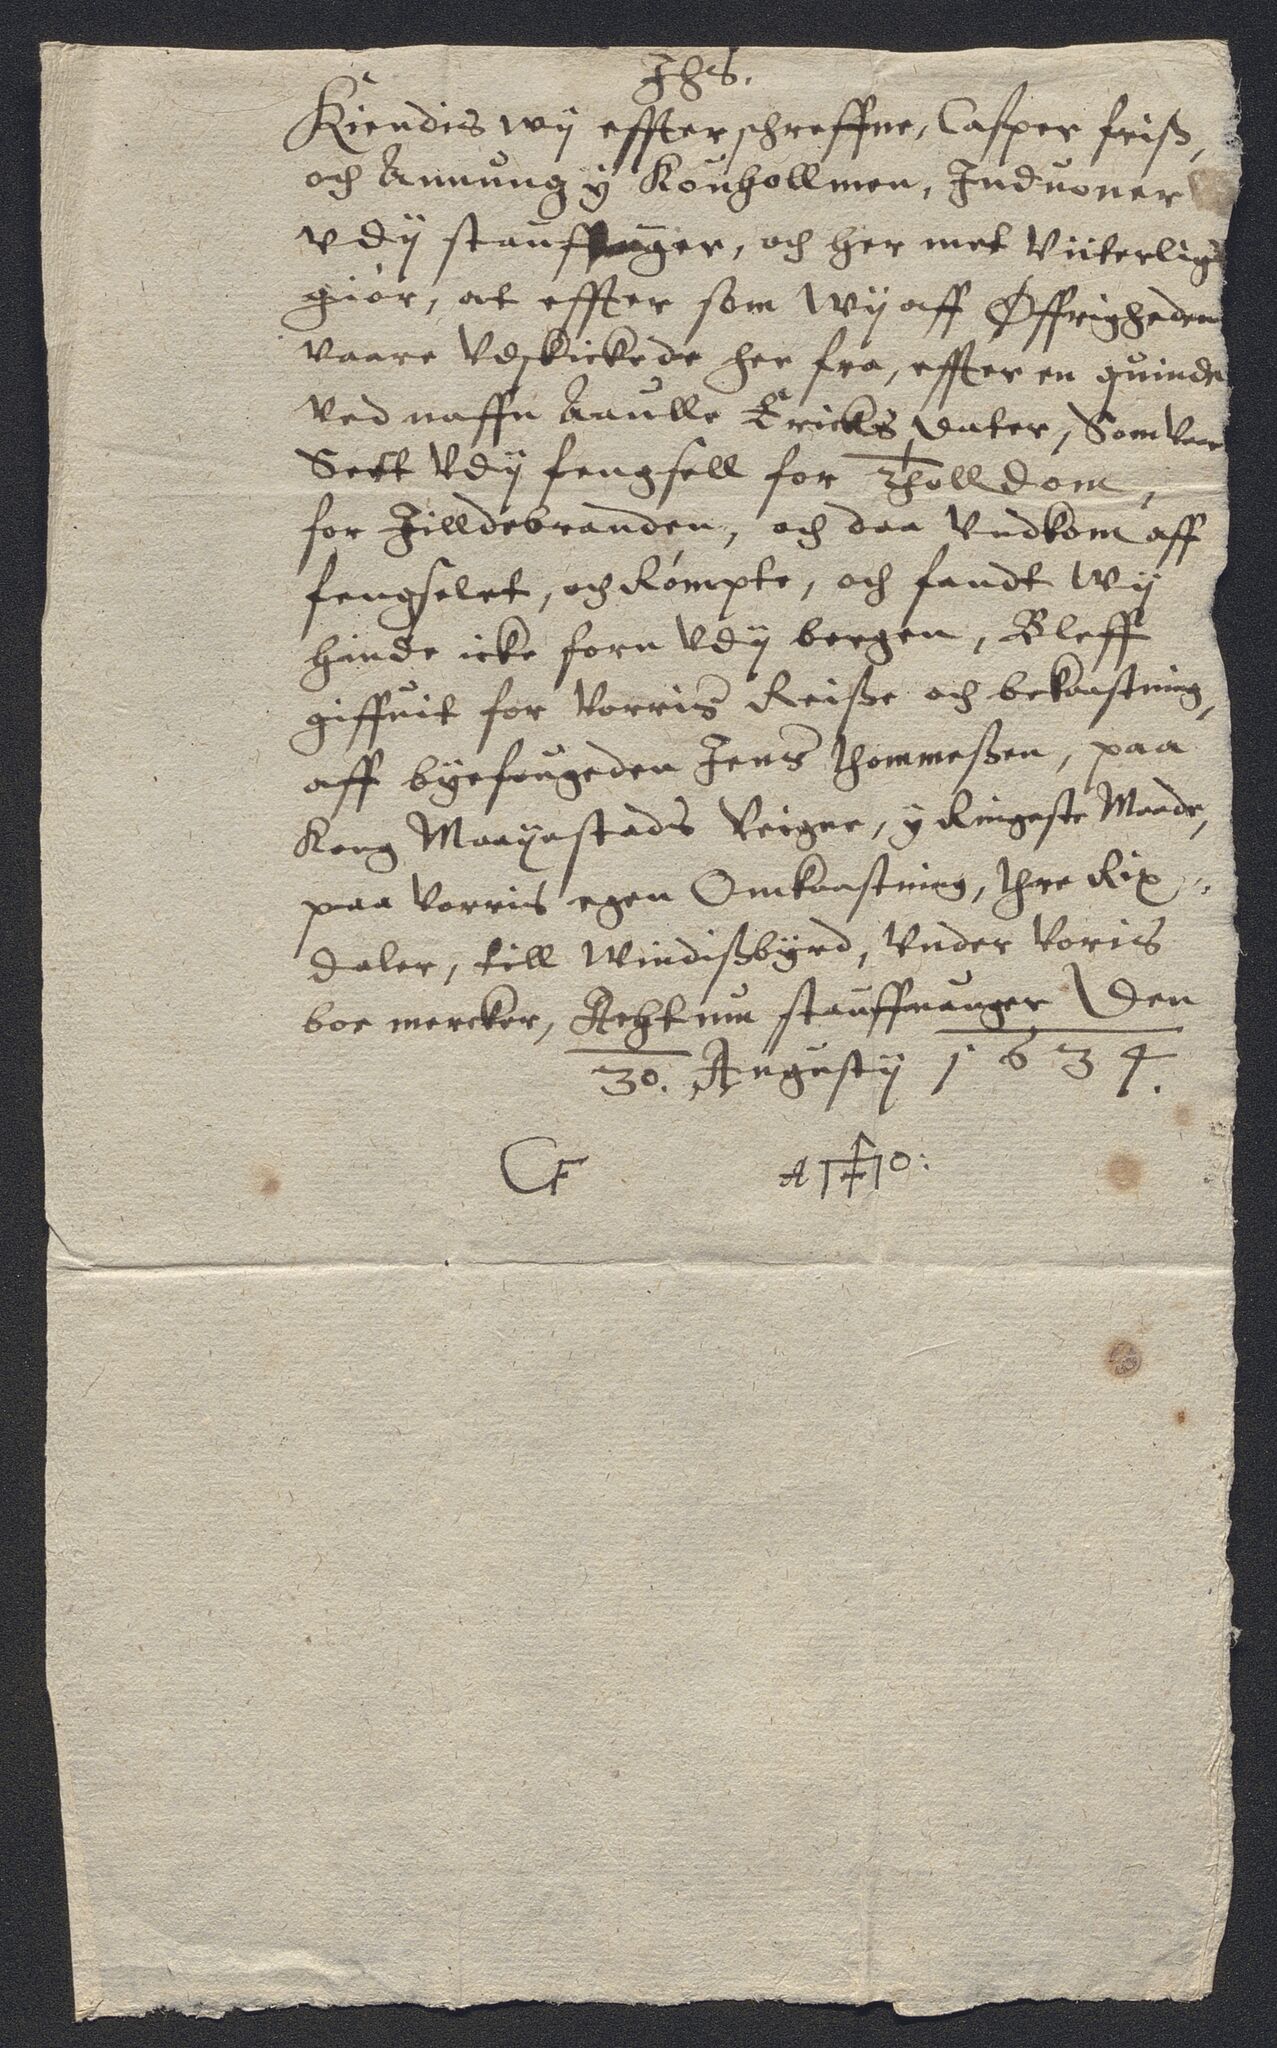 Jhs.
Kiendis wij effterschreffne, Casper friß,
och Amung ÿ Kouhollmen, Induoner
vdÿ stauffanger, och her met Viiterligt
giör, at effter som wij aff Øffrigheden
vaare Vdskickede her fra, effter en quinde
Ved naffn Aaulle Ericks dater, Som Var
Sett Vdÿ fengsell for Tholldom,
for Jilldebranden, och daa Vndkom aff
fengselet, och Römpte, och fandt Wij
hinde icke forn Vdÿ bergen, Bleff
giffuit for Vorris Reiße och bekaastning,
aff byefougeden Jens Thommeßen, paa
Kong Maayestads Veigne, ÿ Ringeste Maade,
paa Vorris egen Omkaastning, thre Rix
daler, till Windißbyrd, Vnder Voris
boe mercker, Achtum stauffuanger Den
30. Augustij 1634.
CF A H O: